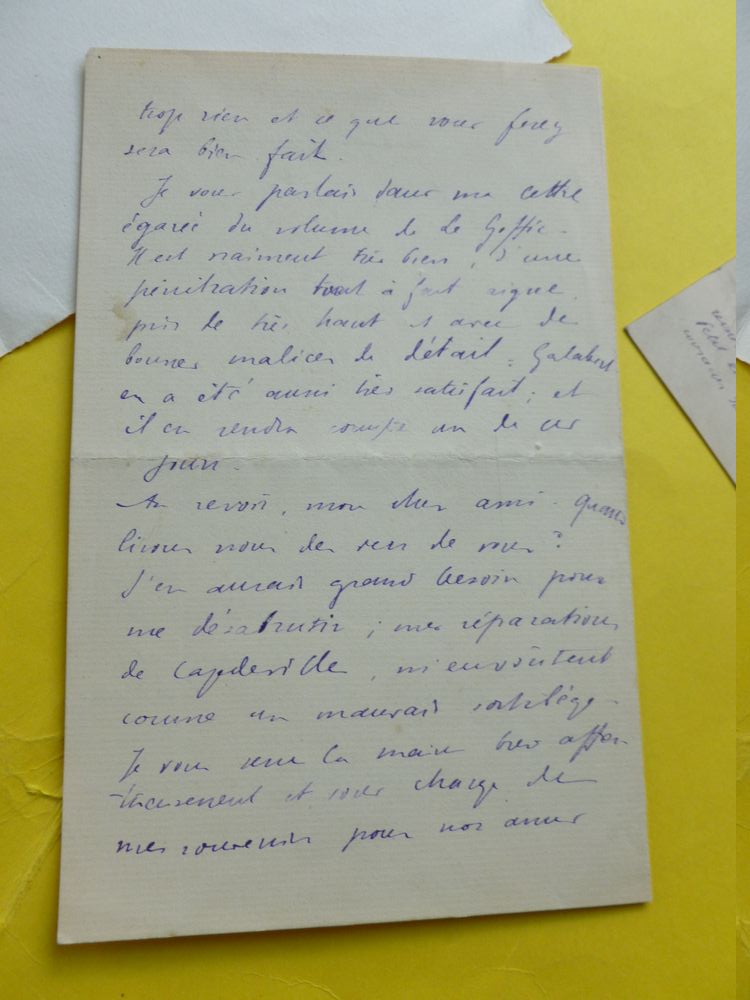 trop rien et ce que vous ferez
sera bien fait.
Je vous parlais dans ma lettre
égarée du volume de Le Goffic.
Il est vraiment très bien, d'une
pénétration tout à fait aigue,
pris de très haut et avec de
bonnes malices de détail. Galabert
en a été aussi très satisfait; et
il en rendra compte un de ces
jours.
Au revoir, mon cher ami. Quand
lirons nous des vers de vous?
J'en aurais grand besoin pour
me désabrutir; mes réparations
de Capdeville, m'envoûtent
comme un mauvais sortilège.
Je vous serre la main bien affec-
tueusement et vous charge de
mes souvenirs pour nos amis